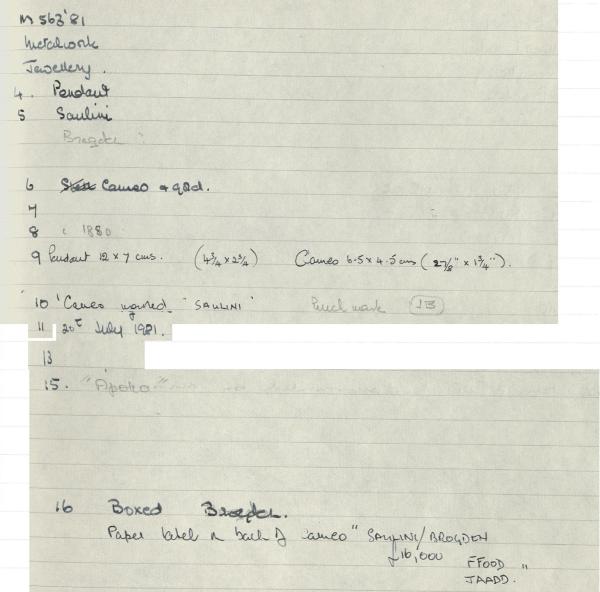 M 563'81
Metalwork
Jewellery.
4. Pendant
5 Saulini
Brogden
6 Cameo & gold.
7
8 c 1880
9 Pendant 12 x 7 cms. (4¾ x 2¾) Cameo 6.5 x 4.5 cms (2⅞" x 1¾").
10 'Cameo marked "SAULINI' Punch mark JB
11 20th July 1981.
13
15. "Apollo"
16 Boxed Brogden.
Paper label on back of cameo "SAULINI/BROGDEN
£16,000 FFOOD "
JAADD.